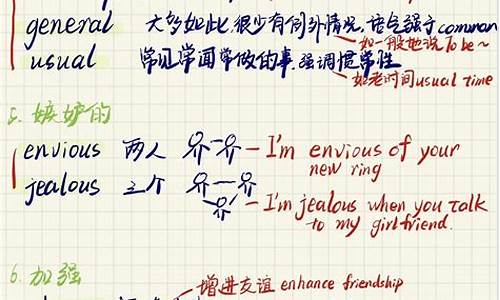 general 大多如此,很少有例外情况,语气强于common
如一般地说 To be~
usual 常见常闻常做的事,强调惯常性
如老时间usual time
5. 嫉妒的
envious 两人 — I'm envious of your
new ring
jealous 三个 — I'm jealous when you talk
to my girlfriend.
6. 加强
增进友谊 enhance friendship